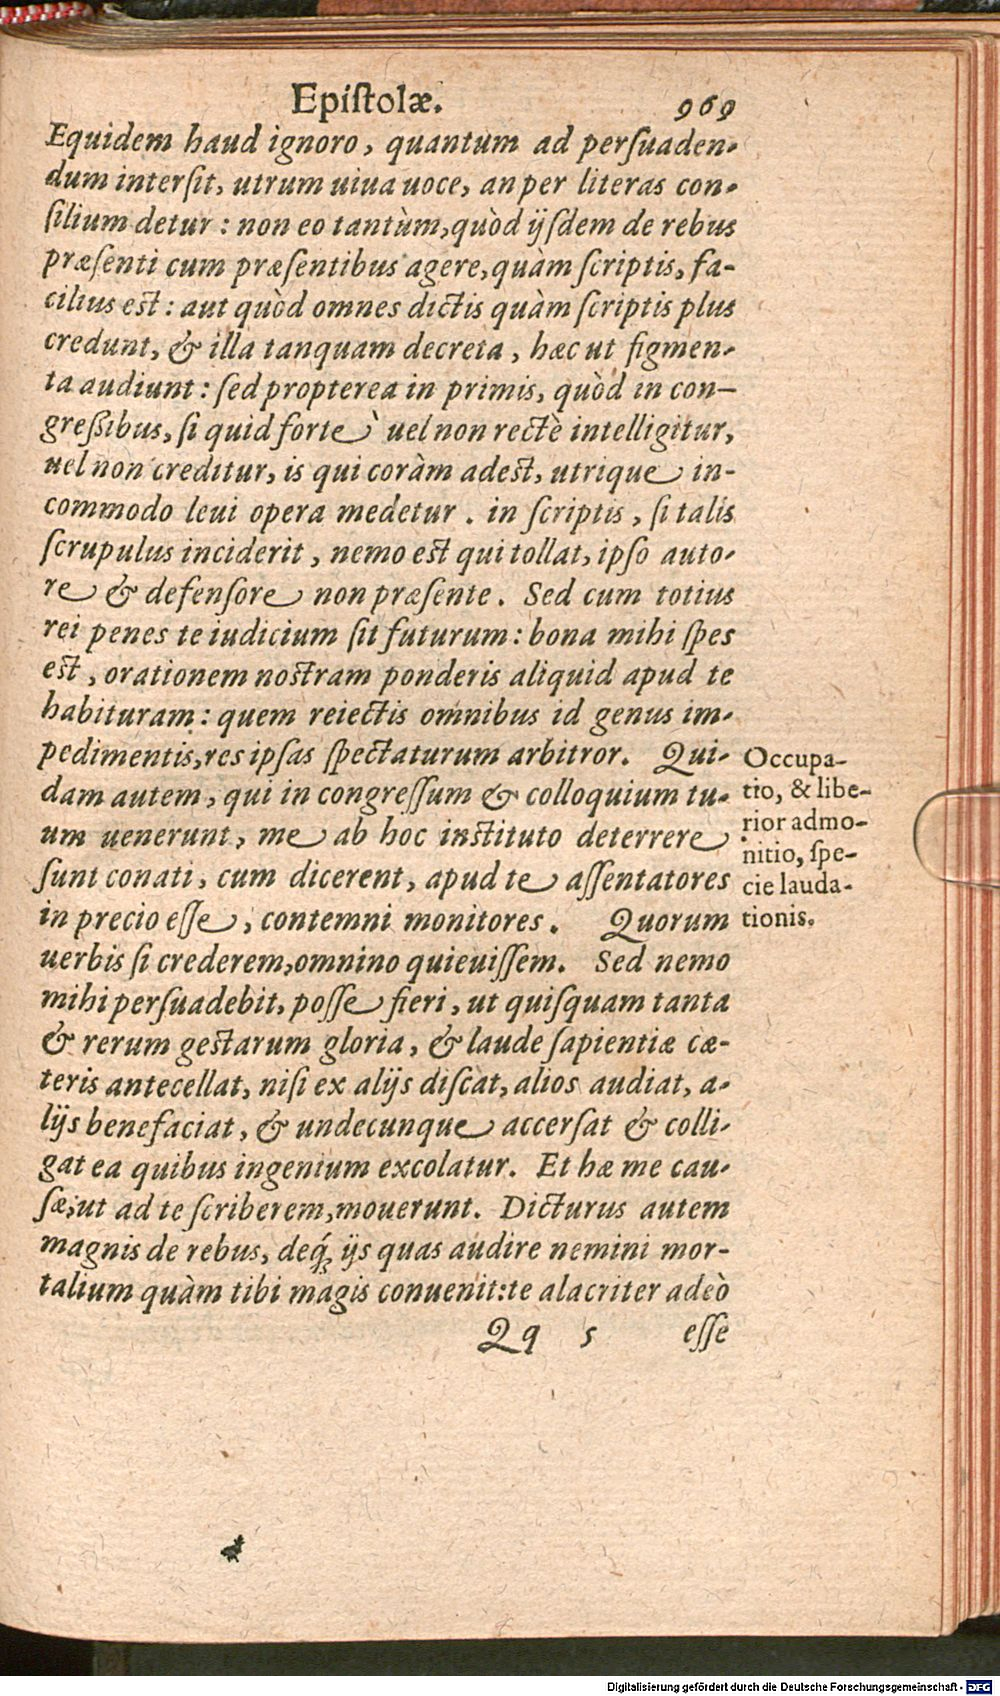 Epistolæ. 969
Equidem haud ignoro, quantum ad persuaden-
dum intersit, utrum uiua uoce, an per literas con-
silium detur: non eo tantùm, quòd ijsdem de rebus
præsenti cum præsentibus agere, quàm scriptis, fa-
cilius est: aut quòd omnes dictis quàm scriptis plus
credunt, & illa tanquam decreta, hæc ut figmen-
ta audiunt: sed propterea in primis, quòd in con-
greßibus, si quid forte uel non rectè intelligitur,
uel non creditur, is qui coràm adest, utrique in-
commodo leui opera medetur. in scriptis, si talis
scrupulus inciderit, nemo est qui tollat, ipso auto-
re & defensore non præsente. Sed cum totius
rei penes te iudicium sit futurum: bona mihi spes
est, orationem nostram ponderis aliquid apud te
habituram: quem reiectis omnibus id genus im-
pedimentis, res ipsas spectaturum arbitror. Qui-
dam autem, qui in congressum & colloquium tu-
um uenerunt, me ab hoc instituto deterrere
sunt conati, cum dicerent, apud te assentatores
in precio esse, contemni monitores. Quorum
uerbis si crederem, omnino quieuissem. Sed nemo
mihi persuadebit, posse fieri, ut quisquam tanta
& rerum gestarum gloria, & laude sapientiæ cæ-
teris antecellat, nisi ex alijs discat, alios audiat, a-
lijs benefaciat, & undecunque accersat & colli-
gat ea quibus ingenium excolatur. Et hæ me cau-
sæ, ut ad te scriberem, mouerunt. Dicturus autem
magnis de rebus, deq́; ijs quas audire nemini mor-
talium quàm tibi magis conuenit: te alacriter adeò
Qq 5 esse
Occupa-
tio, & libe-
rior admo-
nitio, spe-
cie lauda-
tionis.
Digitalisierung gefördert durch die Deutsche Forschungsgemeinschaft - DFG